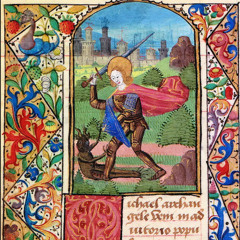 Michael archan
gele veni in ad
iutorio popu